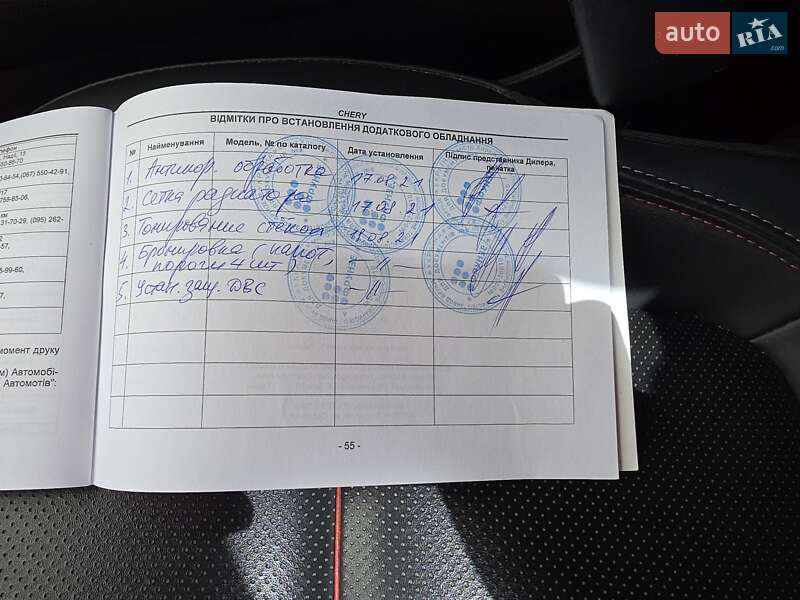 auto RIA.com
CHERY
ВІДМІТКИ ПРО ВСТАНОВЛЕННЯ ДОДАТКОВОГО ОБЛАДНАННЯ
№ Найменування Модель, № по каталогу Дата установлення Підпис представника Дилера, печатка
1. Антикор. обработка 17.08.21
2. Сетка радиатора 17.08.21
3. Тонирование стёкол 18.08.21
4. Бронировка (капот, пороги 4 шт) - 11 -
5. Устан. защ. ДВС - 11 -
- 55 -
Надії, 13
50-86-70
0-84-54,(067) 550-42-91,
758-83-06,
31-70-29, (095) 262-
-57,
5-99-60,
момент друку
м) Автомобі-
Автомотів":